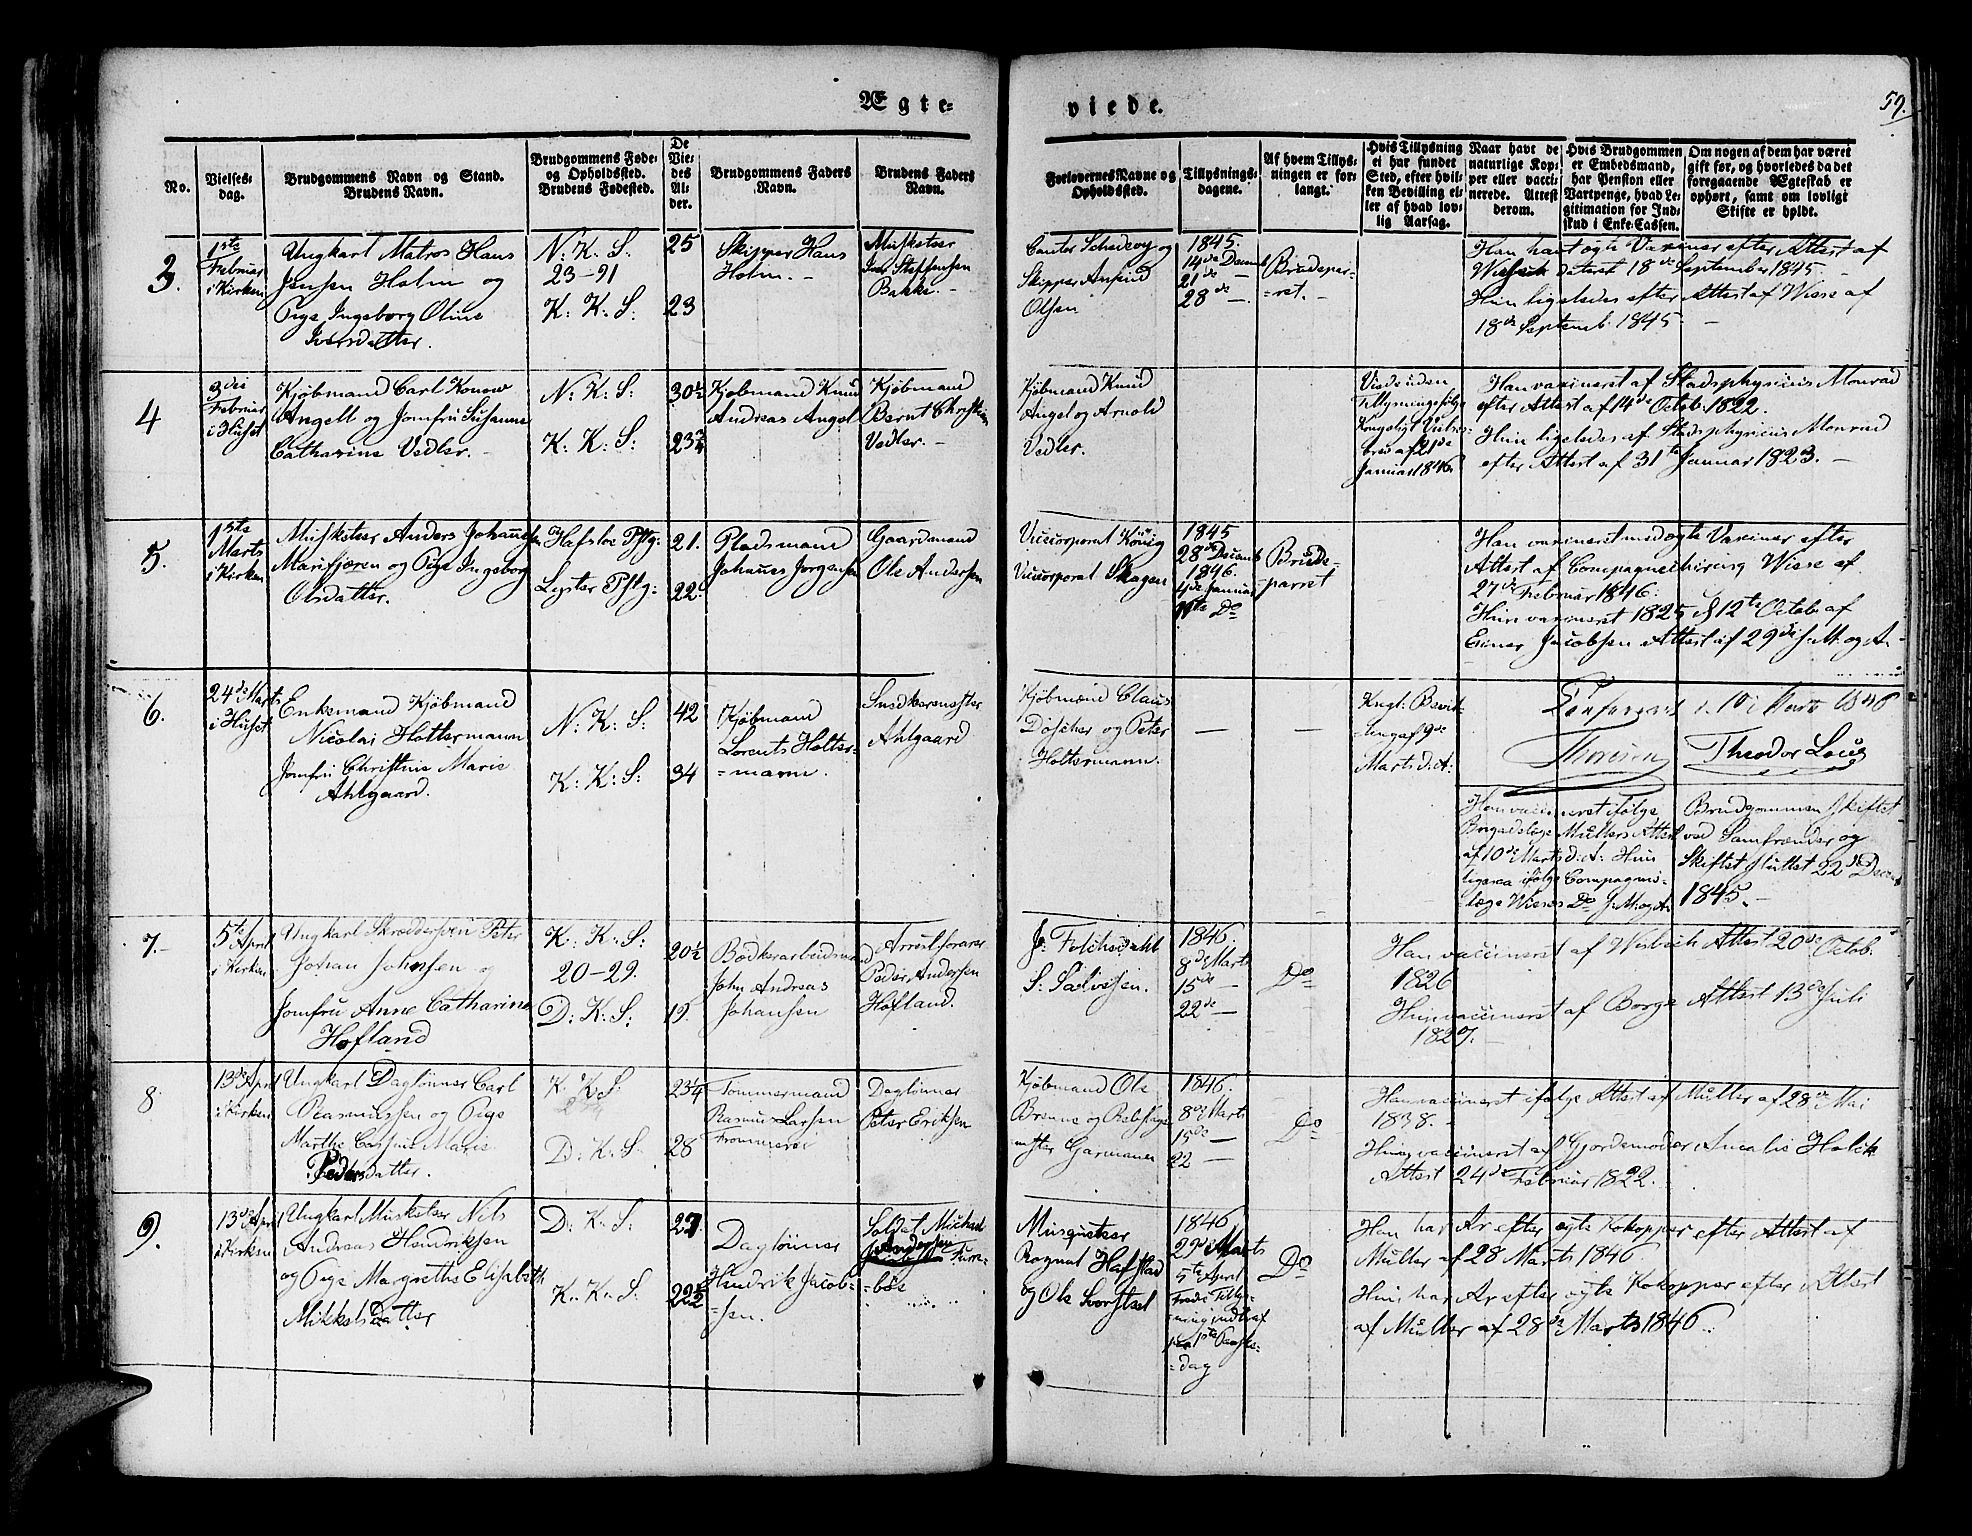 Ægte-
viede.
59.
No.
Vielses-
dag.
Brudgommens Navn og Stand.
Brudens Navn.
Brudgommens Føde-
og Opholdssted.
Brudens Fødested.
De
Vie-
des
Al-
der.
Brudgommens Faders
Navn.
Brudens Faders
Navn.
Forlovernes Navne og
Opholdssted.
Tillysnings-
dagene.
Af hvem Tillys-
ningen er for-
langt.
Hvis Tillysning
ei har fundet
Sted, efter hvil-
ken Bevilling el-
ler af hvad lov-
lig Aarsag.
Naar havt de
naturlige Kop-
per eller vacci-
nerede. Attest
derom.
Hvis Brudgommen
er Embedsmand,
har Pension eller
Vartpenge, hvad Le-
gitimation for Ind-
skud i Enke-Cassen.
Om nogen af dem har været
gift før, og hvorledes da det
foregaaende Ægteskab er
ophørt, samt om lovligt
Skifte er holdt.
3.
1ste
Februar
i Kirken
Ungkarl Matros Hans
Jansen Holm og
Pige Ingeborg Oline
Iversdatter.
N: K: S:
23-91
K: K: S:
25
23
Skipper Hans
Holm. -
Musketeer
Iver Steffensen
Bakke. -
Cantor Schedevy og
Skipper Anfind
Olsen
1845.
14de Decemb
21de -
28de -
Brudepar-
=ret. -
Han havt ægte Vaxiner efter Attest af
dateret 18de September 1845. -
Hun ligeledes efter Attest af Wiese af
18de Septemb. 1845. -
4
3die
Februar
i Huset
Kjøbmand Carl Konow
Angell og Jomfru Susanne
Catharine Vedler. -
N: K: S:
K: K: S:
30½
23¾
Kjøbmand Knud
Andreas Angel
Kjøbmand
Bernt Christian
Vedler. -
Kjøbmand Knud
Angel og Arnold
Vedler.
Viede uden
Tillysning ifølge
Kongeligt Vielses-
brev af 21de
Januar 1846
Han vaxineret af Stadsphysicus Monrad
efter Attest af 14de Octob: 1822.
Hun ligeledes af Stadsphysicus Monrad
efter Attest af 31te Januar 1823. -
5.
1ste
Marts
i Kirken
Musketeer Anders Johannesen
Marifjæren og Pige Ingeborg
Olsdatter.
Hafsloe Pstg:
Lyster Pstg:
21.
22.
Pladsmand
Johannes Jørgensen
Gaardmand
Ole Andersen
Vicecorporal König
Vicecorporal Skagen
1845
28de Decemb
1846.
4de Januar
11te Do
Brude-
parret
Han vaxineret med ægte Vaxiner efter
Attest af Compagniechirurg Wiese af
27de Februar 1846.
Hun vaxineret 1825 d 12te Octob. af
Einer Jacobsen Attest af 29de J. M. og A.
6.
24de Marts
i Huset
Enkemand Kjøbmand
Nicolai Holtermann
Jomfru Christine Marie
Ahlgaard.
N: K: S:
K: K: S:
42
34
Kjøbmand
Lorents Holter-
=mann.
Snedkermester
Ahlgaard
Kjøbmand Claus
Döscher og Peter
Holtermann.
-
-
Kngl: Bevil-
ling af 9de
Marts d: A:
Thoresen
Theodor Louz
Han vaccineret ifølge
Brigadelæge Müllers Attest
af 10de Marts d: A: Hun
ligesaa ifølge Compagnie-
læge Wieses Do J. M. og A:
Brudgommen skiftet
ved Samfrænder og
Skiftet sluttet 22de Decem
1845. -
7.
5te April
i Kirken
Ungkarl Skræddersvend Peter
Johan Johnsen og
Jomfru Anne Catharine
Hofland
K: K: S:
20-29.
D: K: S:
20½
19.
Bødkerarbeidsmand
John Andreas
Johansen
Arrestforvarer
Peder Andersen
Hofland.
S: Salvesen.
1846.
8de Marts
15de -
22de -
Do
Han vaccineret af Attest 20de Octob.
1826
Hun vaccineret af Borge Attest 13de Juli
1827. -
8.
13de April
i Kirken
Ungkarl Dagløner Carl
Rasmussen og Pige
Marthe Marie
Pedersdatter.
K K S:
D: K: S:
23¼
28
Tømmermand
Rasmus Larsen
Dagløner
Peter Eriksen
Kjøbmand Ole
1846.
8de Marts
15de -
22 -
Do
Han vaccineret ifølge Attest af Müller af 28de Mai
1838. -
Hun vaccineret af Gjordemoder Amalie Holck
Attest 24de Februar 1822.
9.
13de April
i Kirken
Ungkarl Musketeer Nils
Andreas Hendriksen
og Pige Margrethe Elisabeth
Mikkels Datter
D: K: S:
K: K: S:
27.
22½
Dagløner
Hendrik Jacob-
=sen.
Soldat Michael
Andersen
Musqueteer
Rognat Hafstad
og Ole
1846
29de Marts
5te April
Do
Han har Ar efter ægte Kokopper efter Attest af
Müller af 28 Marts 1846
Hun har Ar efter ægte Kokopper efter Attest
af Müller af 28de Marts 1846.